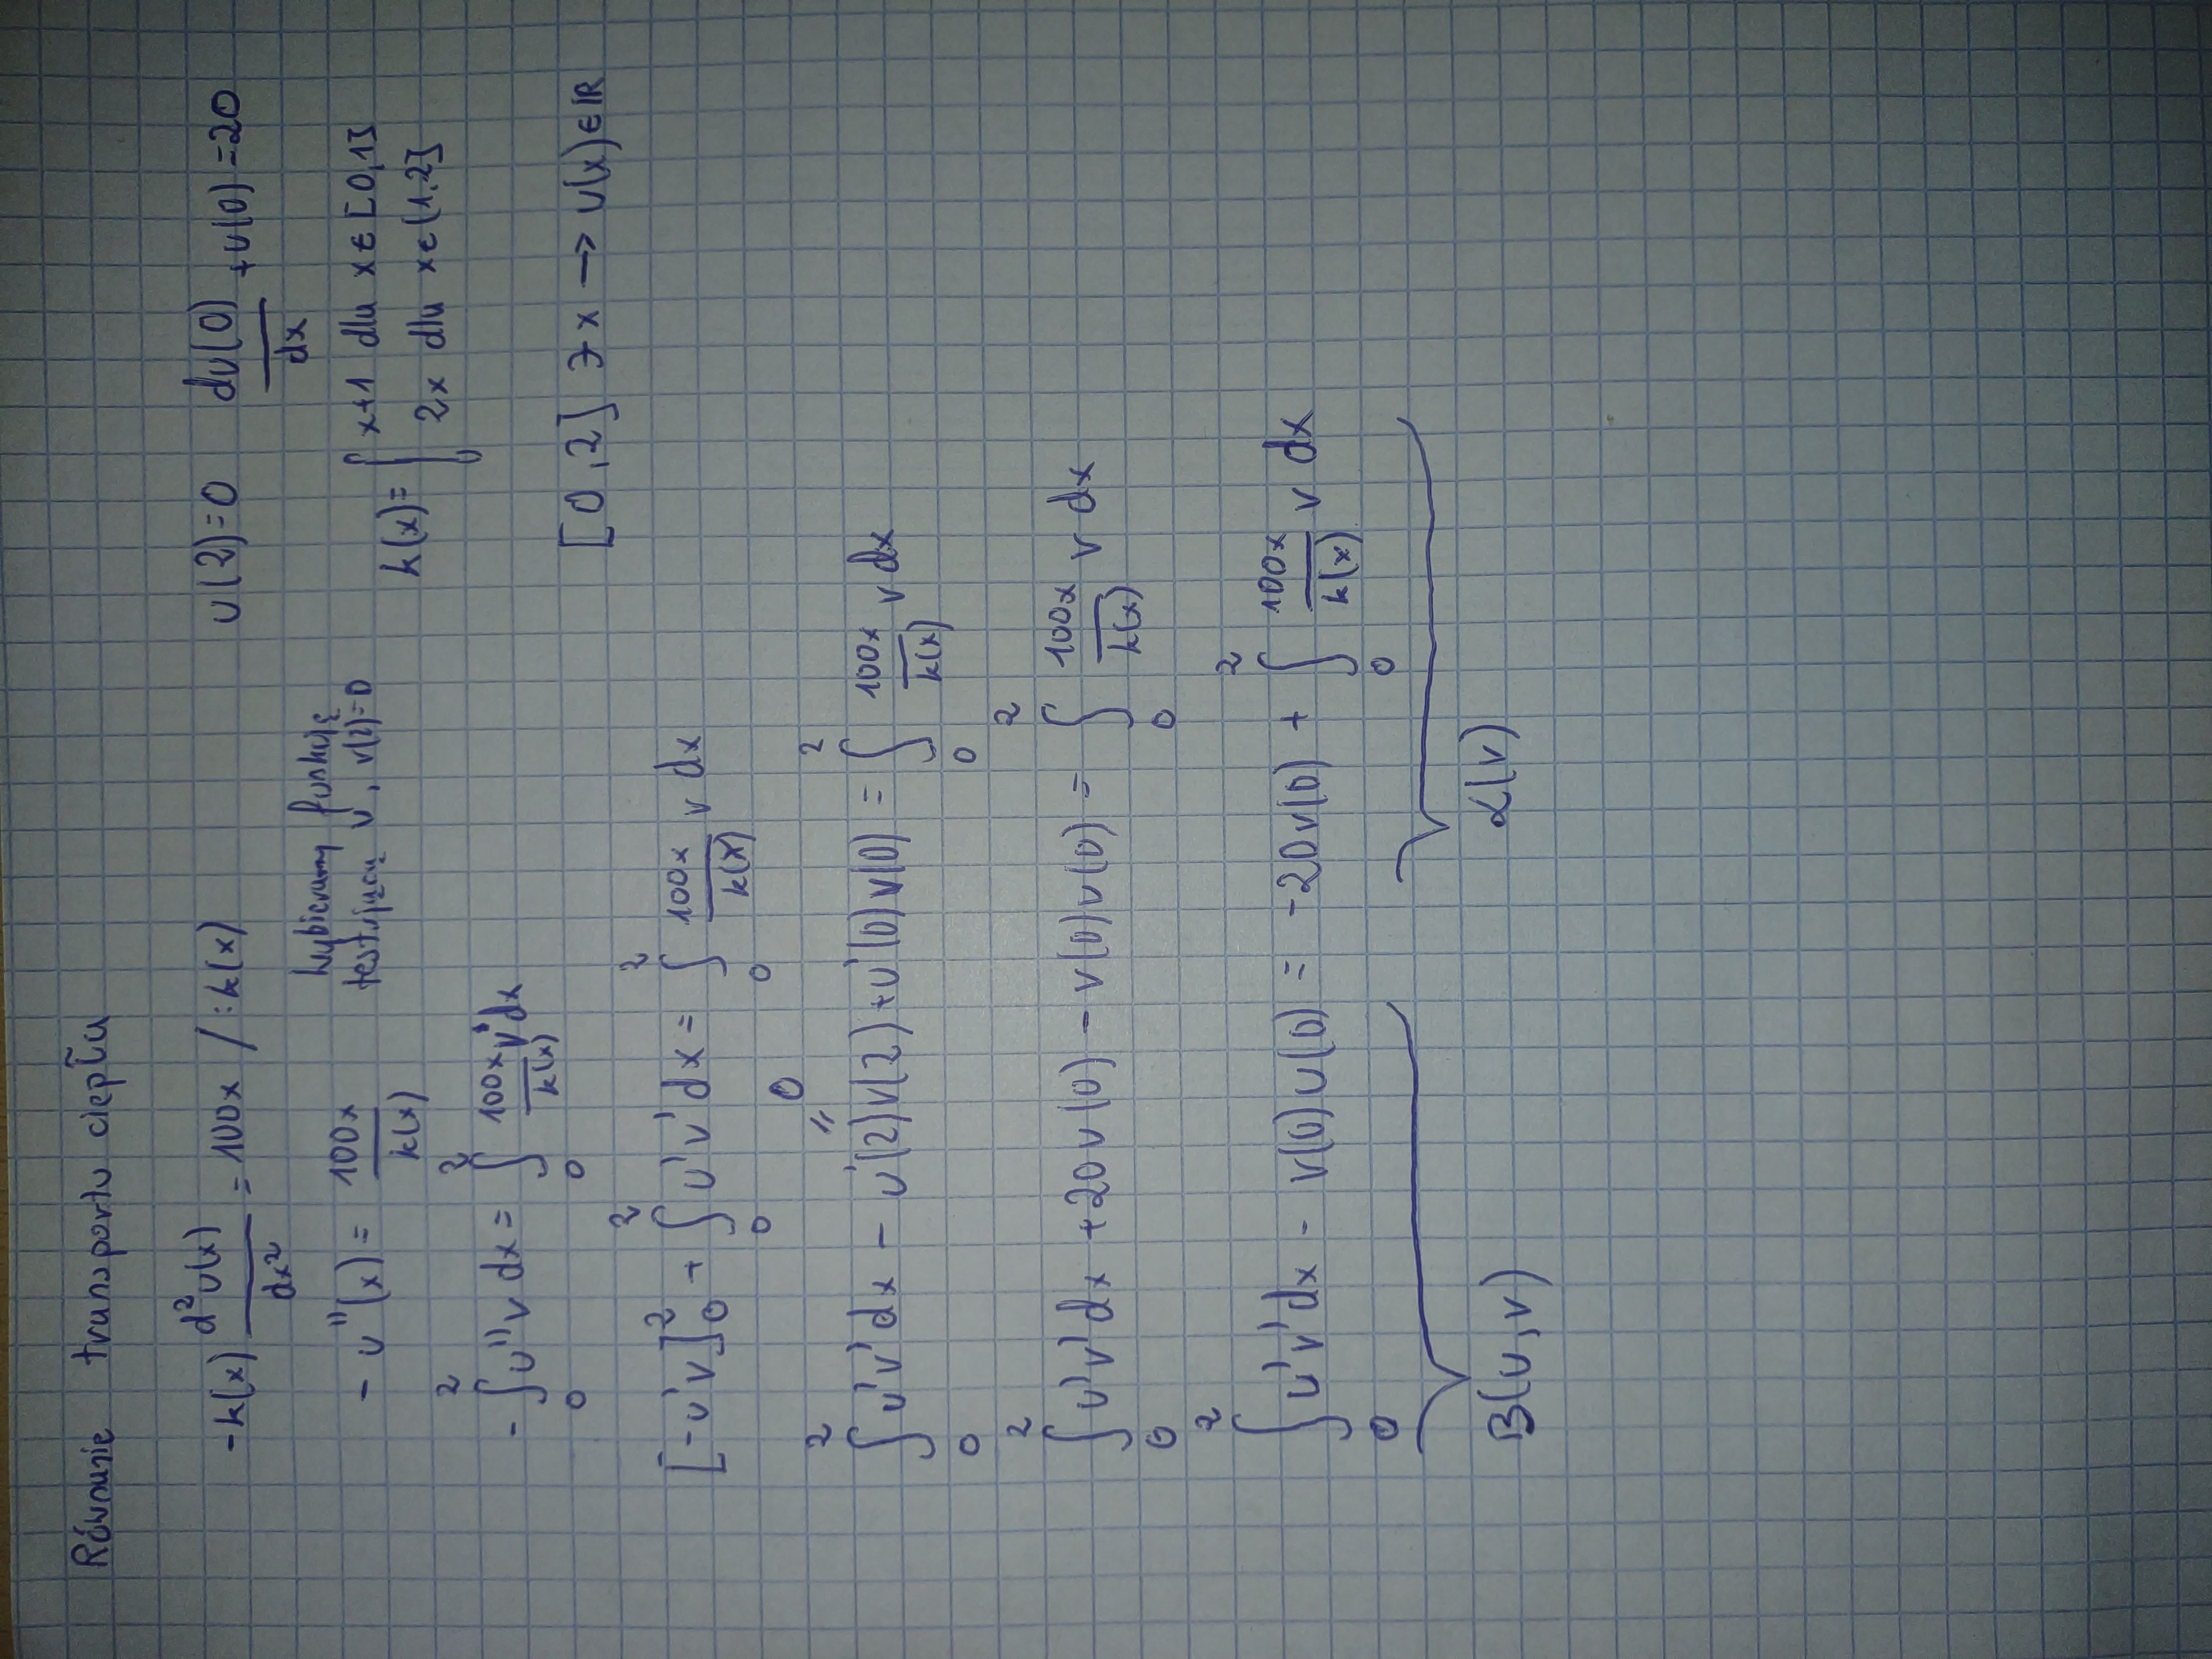 Równanie transportu ciepła
-k(x) d²u(x)/dx² = 100x /:k(x)
u(2)=0 du(0)/dx +u(0)=20
-u''(x)= 100x/k(x)
Wybieramy funkcję
testującą v, v(2)=0
k(x)= { x+1 dla x∈[0,1]
2x dla x∈(1,2]
-∫₀² u''v dx = ∫₀² 100x/k(x) v dx
[0,2] ∋ x → u(x)∈ℝ
[-u'v]₀² + ∫₀² u'v'dx = ∫₀² 100x/k(x) v dx
0
=
∫₀² u'v'dx - u'(2)v(2)+u'(0)v(0) = ∫₀² 100x/k(x) v dx
∫₀² u'v'dx +20v(0) - v(0)u(0) = ∫₀² 100x/k(x) v dx
∫₀² u'v'dx - v(0)u(0) = -20v(0) + ∫₀² 100x/k(x) v dx
B(u,v) L(v)